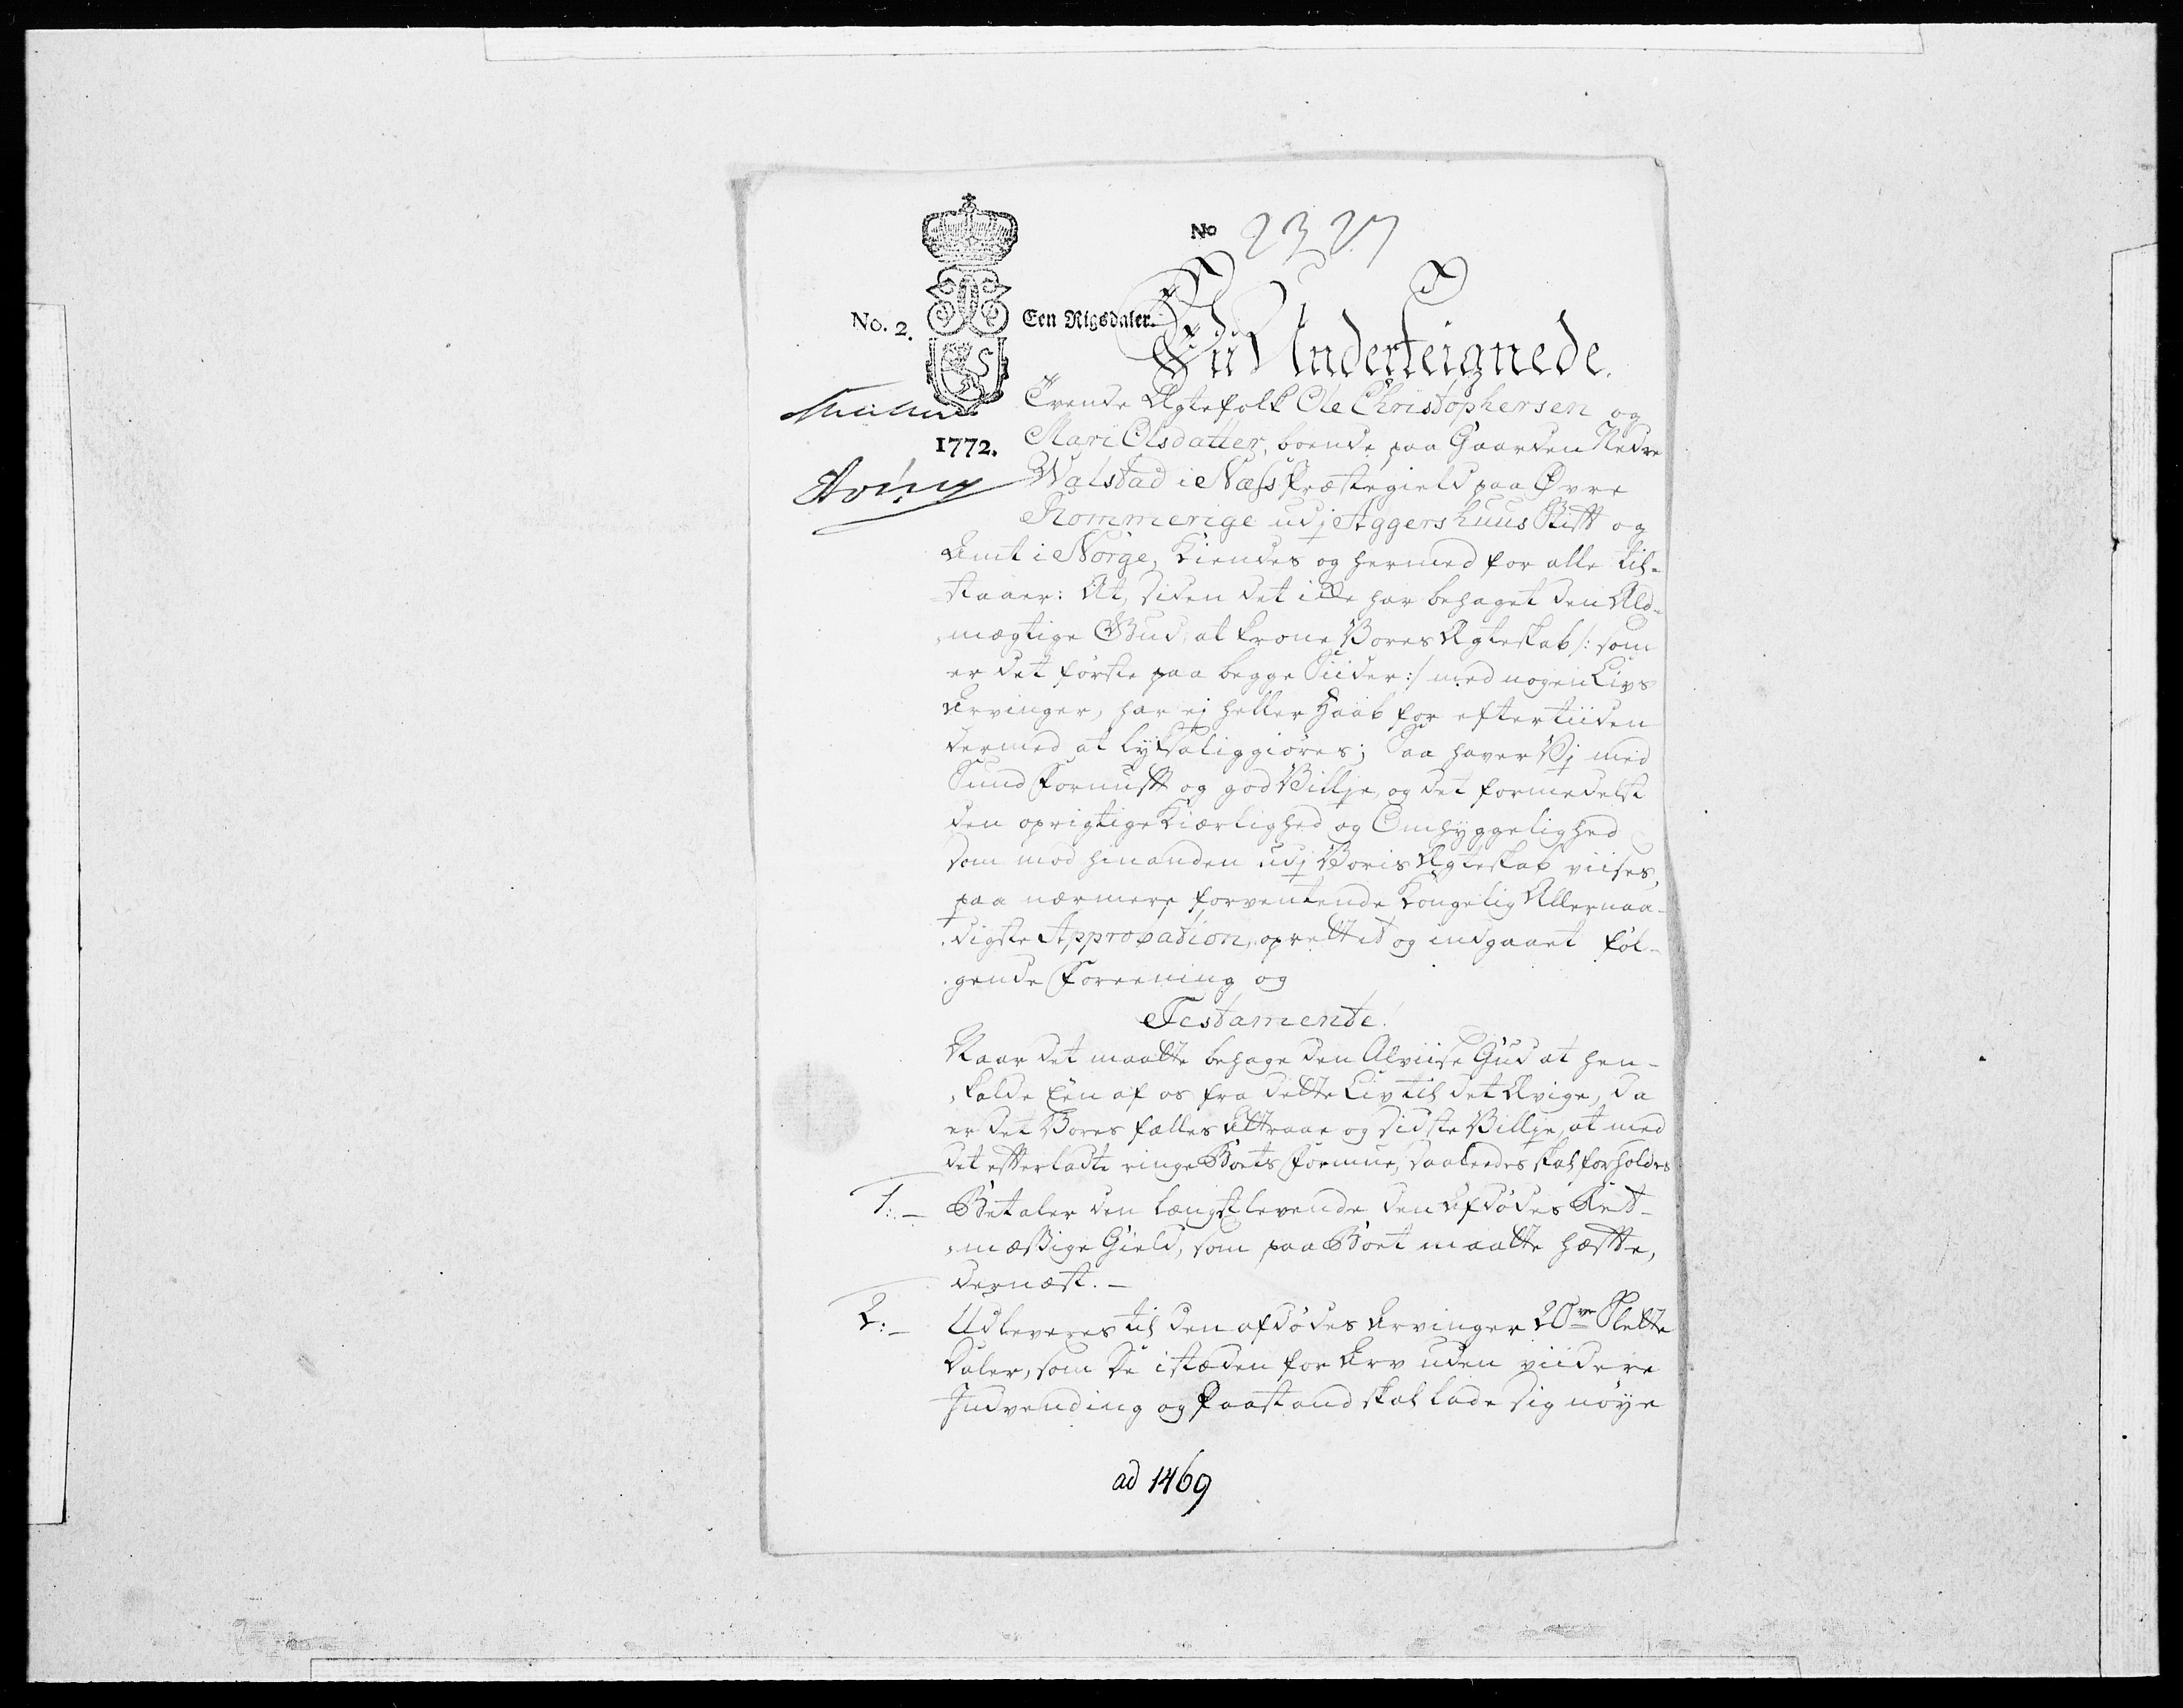 No 2327
No. 2. Een Rigsdaler.
Vii Underteignede.
Tvende Ægtefolk Ole Christophersen og
1772. Mari Olsdatter, boende paa Gaarden Nedre
Walstad i Næss Præstegield paa Øvre
Rommerige udj Aggershuus Stift og
Amt i Norge, Kiendes og hermed for alle til-
staaer: At, siden det ikke har behaget den Ald-
mægtige Gud, at krone Vores Ægteskab /: som
er det første paa begge Siider :/ med nogen Livs
Arvinger, har ej heller Haab for eftertiiden
dermed at lyksaliggiøres; Saa haver Vj med
Sund Fornuft og god Villje, og det formedelst
den oprigtige Kiærlighed og Omhyggelighed
som mod hinanden udj Voris Ægteskab viises,
paa nærmere forventende Kongelig Allernaa-
digste Approbation, oprettet og indgaaet føl-
gende Foreening og
Testamente.
Naar det maatte behage den Alviise Gud at hen-
kalde Een af os fra dette Liv til det Ævige, da
er det Vores fælles Attraae og sidste Villje, at med
det efterladte ringe Boets Formue, saaleedes skal forholdes
1:- Betaler den længstlevende den Afdødes Ret-
mæssige Gield, som paa Boet maatte hæfte,
dernæst.-
2:- Udleveres til den afdødes Arvinger 20ve Slette
Daler, som De istæden for Arv uden viidere
Indvending og Paastand skal lade sig nøye
ad 1469